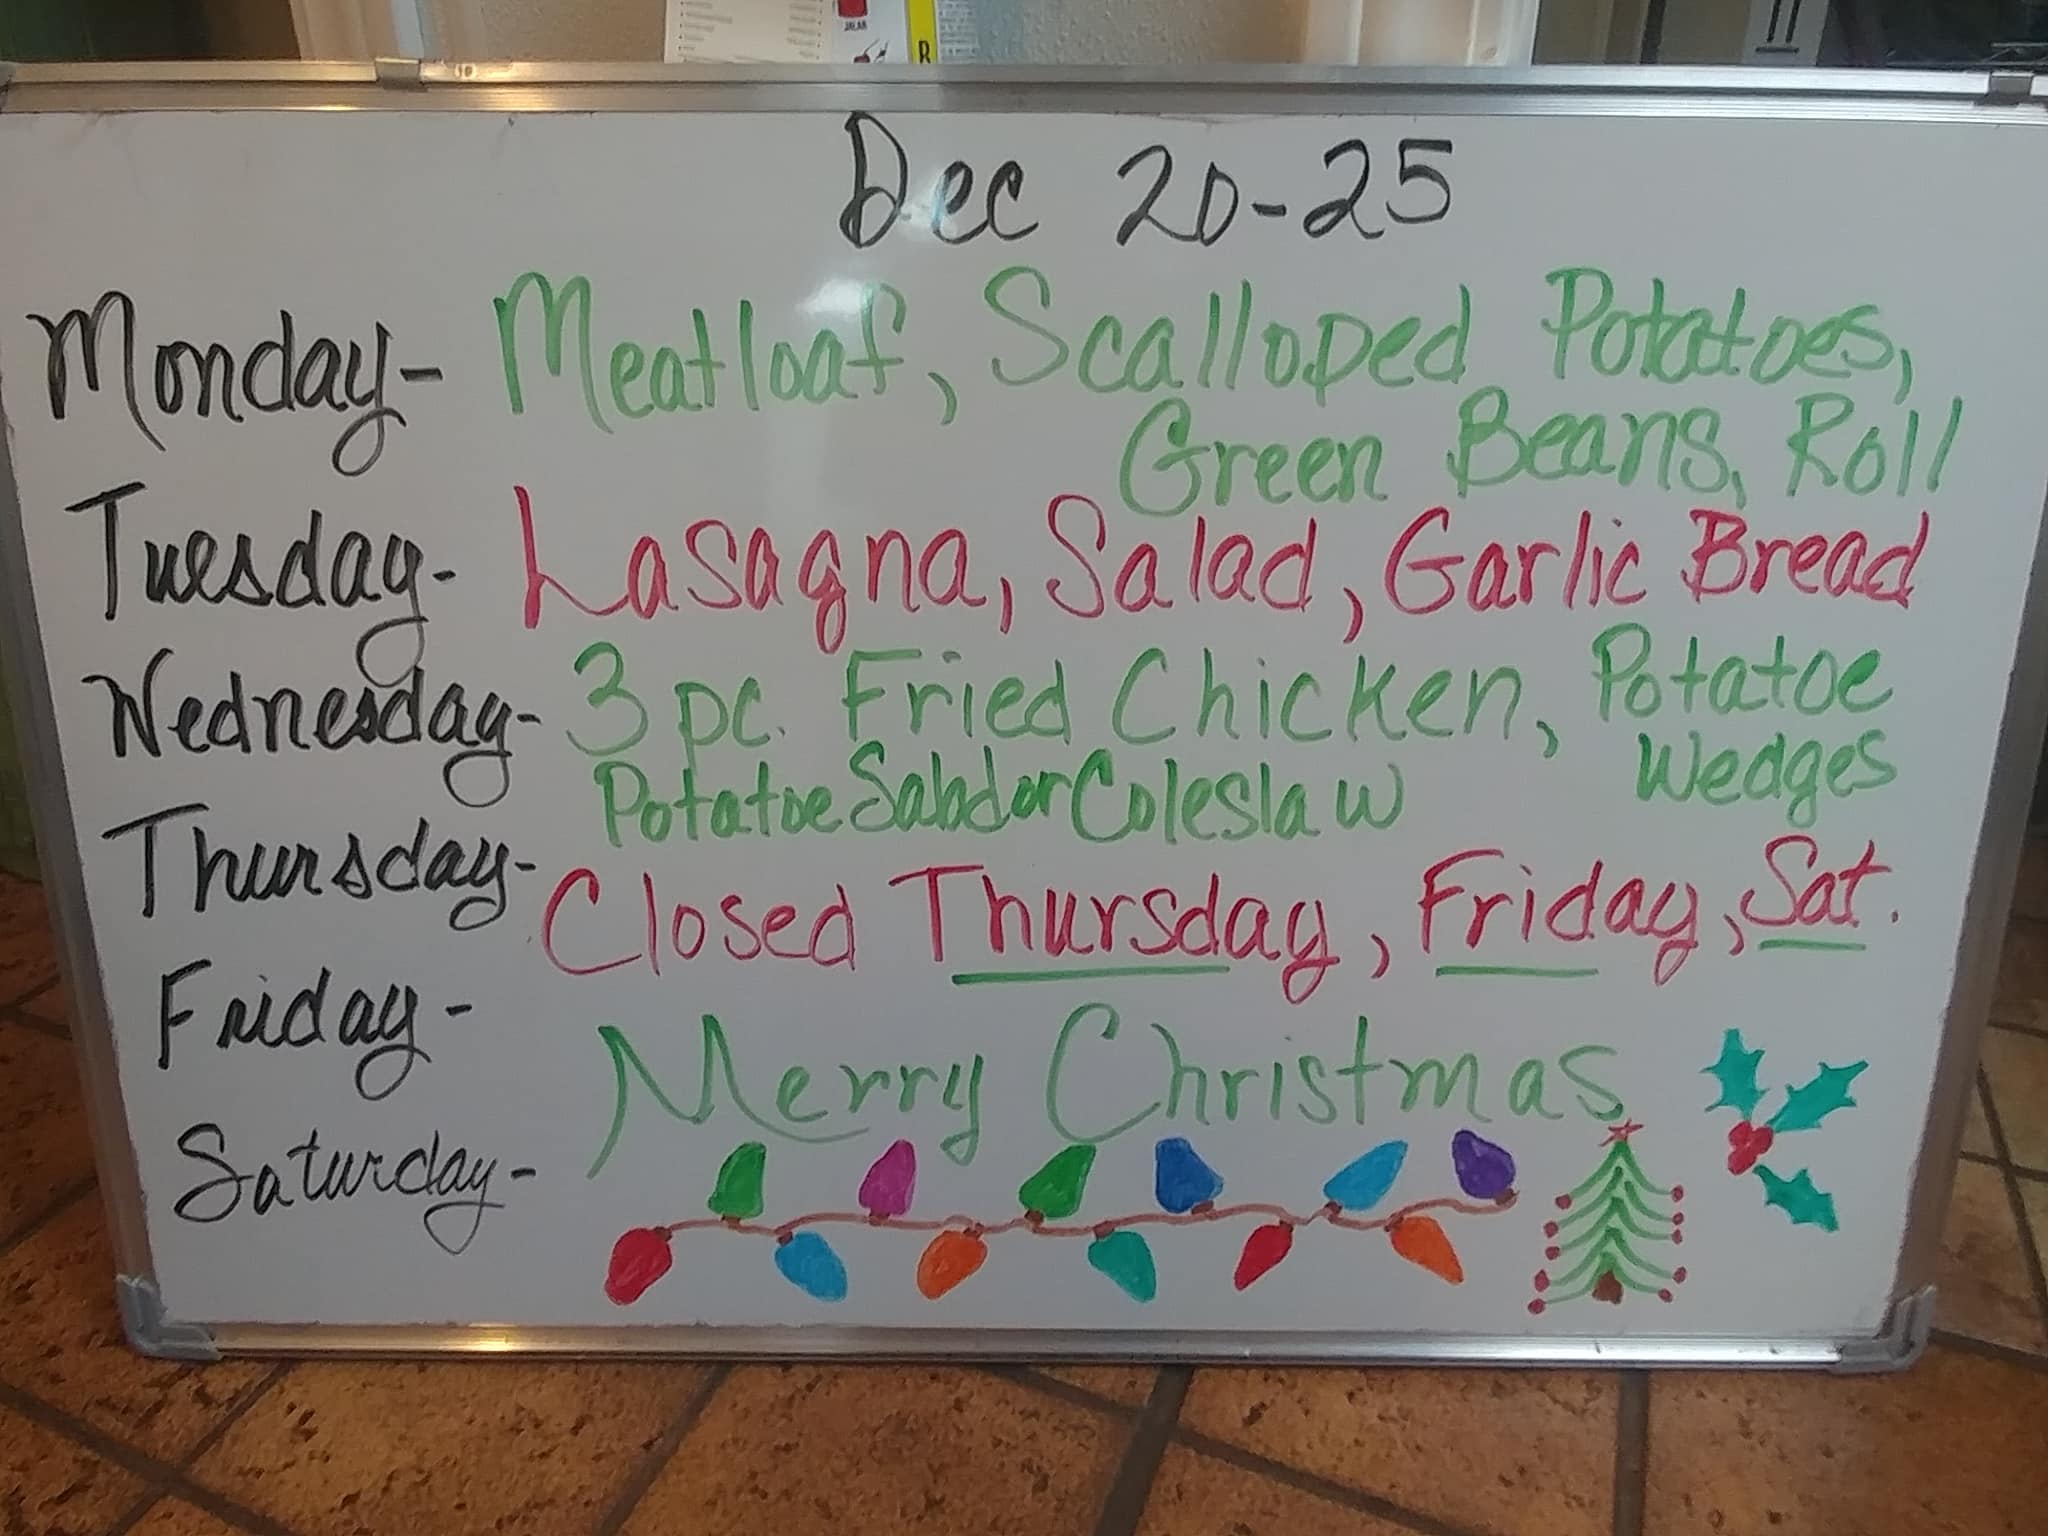 JALAR
B
Dec 20-25
Monday- Meatloaf, Scalloped Potatoes,
Green Beans, Roll
Tuesday- Lasagna, Salad, Garlic Bread
Wednesday- 3 pc. Fried Chicken, Potatoe
Wedges
Potatoe Salad or Coleslaw
Thursday- Closed Thursday, Friday, Sat.
Friday-
Merry Christmas
Saturday-